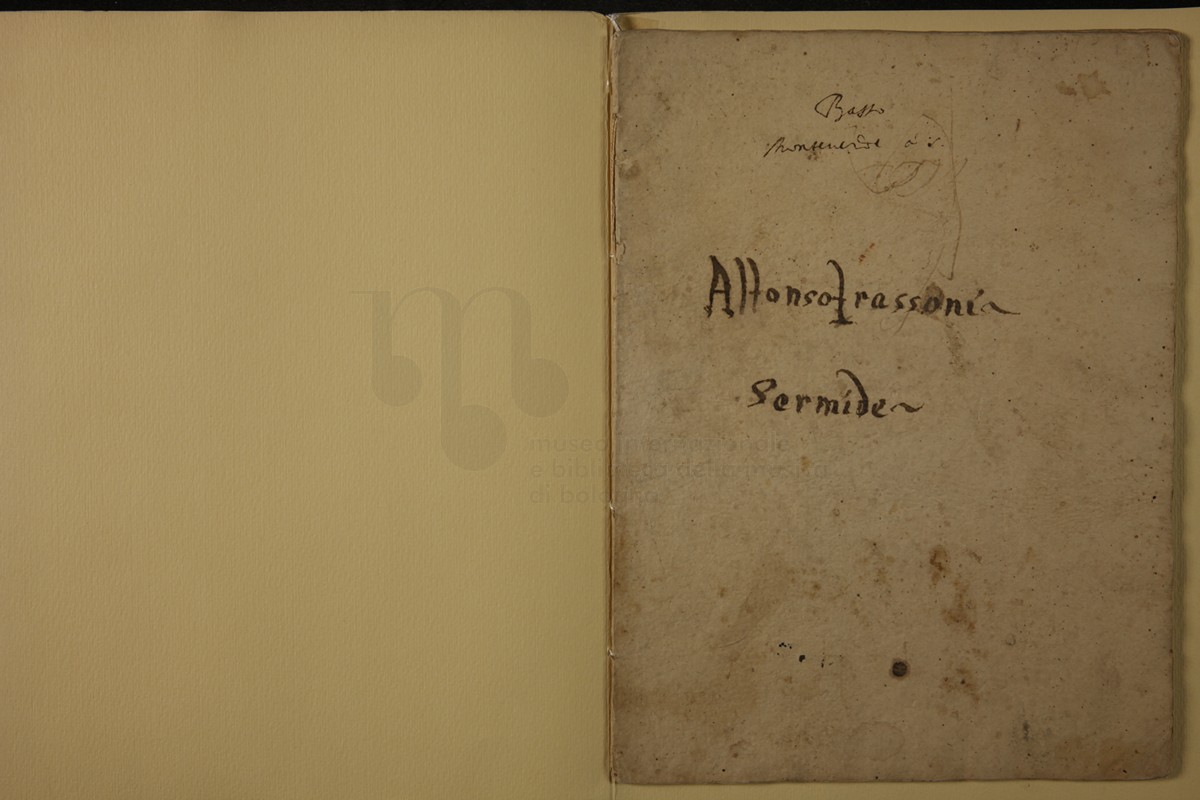 Basso
Monteverde à 5.
Alfonso frassoni
Sermide
museo internazionale
e biblioteca della musica
di bologna